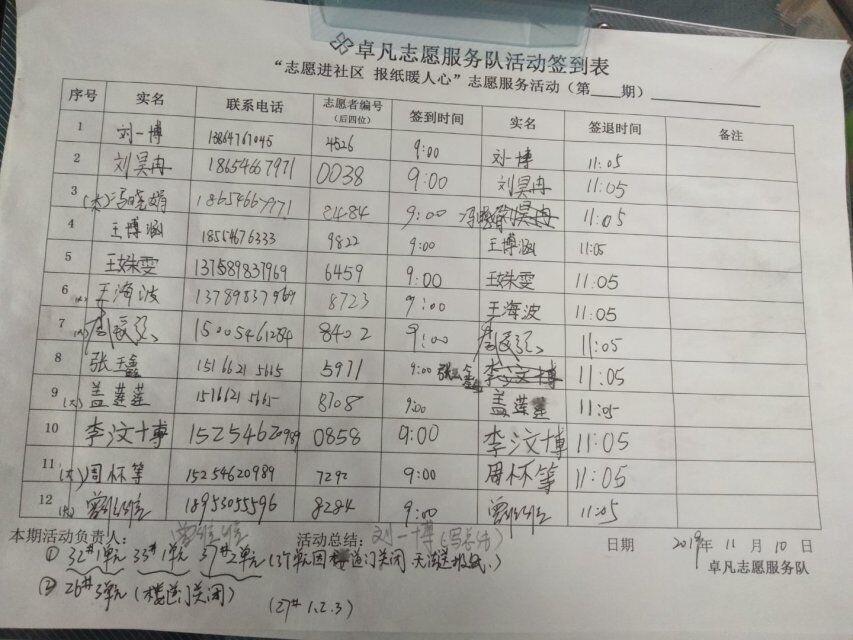 卓凡志愿服务队活动签到表
“志愿进社区 报纸暖人心”志愿服务活动（第 期）
序号 实名 联系电话 志愿者编号（后四位） 签到时间 实名 签退时间 备注
1 刘一博 13864767045 4526 9:00 刘一博 11:05
2 刘昊冉 18654667971 0038 9:00 刘昊冉 11:05
3 (大) 冯晓娟 18654667971 8484 9:00 冯晓娟 11:05
4 王博涵 18554676333 9822 9:00 王博涵 11:05
5 王姝雯 13789837969 6459 9:00 王姝雯 11:05
6 (大) 王海波 13789837969 8723 9:00 王海波 11:05
7 (大) 15005461284 8402 9:00 11:05
8 张玉鑫 15166215165 5971 9:00 张玉鑫 11:05
9 (大) 盖莲莲 15166215165 8708 9:00 盖莲莲 11:05
10 李汶博 15254620989 0858 9:00 李汶博 11:05
11 (大) 周怀等 15254620989 7292 9:00 周怀等 11:05
12 (大) 18953055596 8284 9:00 11:05
本期活动负责人： 活动总结：刘一博 日期 2019年 11 月 10 日
① 32#1单元 33#1单元 37#2单元 (37单元因楼道门关闭 无法送报纸.) 卓凡志愿服务队
② 26#3单元 (楼道门关闭) (27# 1.2.3)